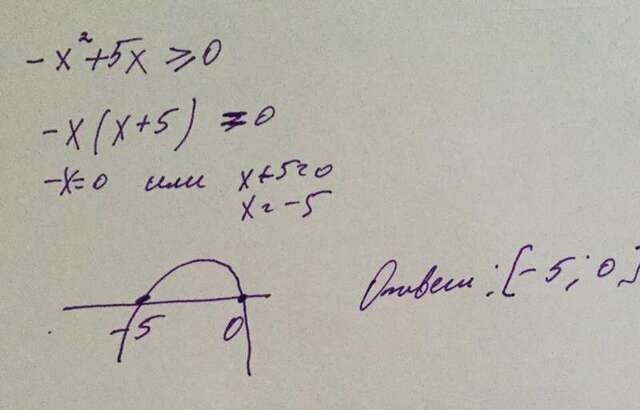 -x²+5x ≥ 0
-x(x+5) = 0
-x=0 или x+5=0
x=-5
-5 0
Ответ: [-5; 0]